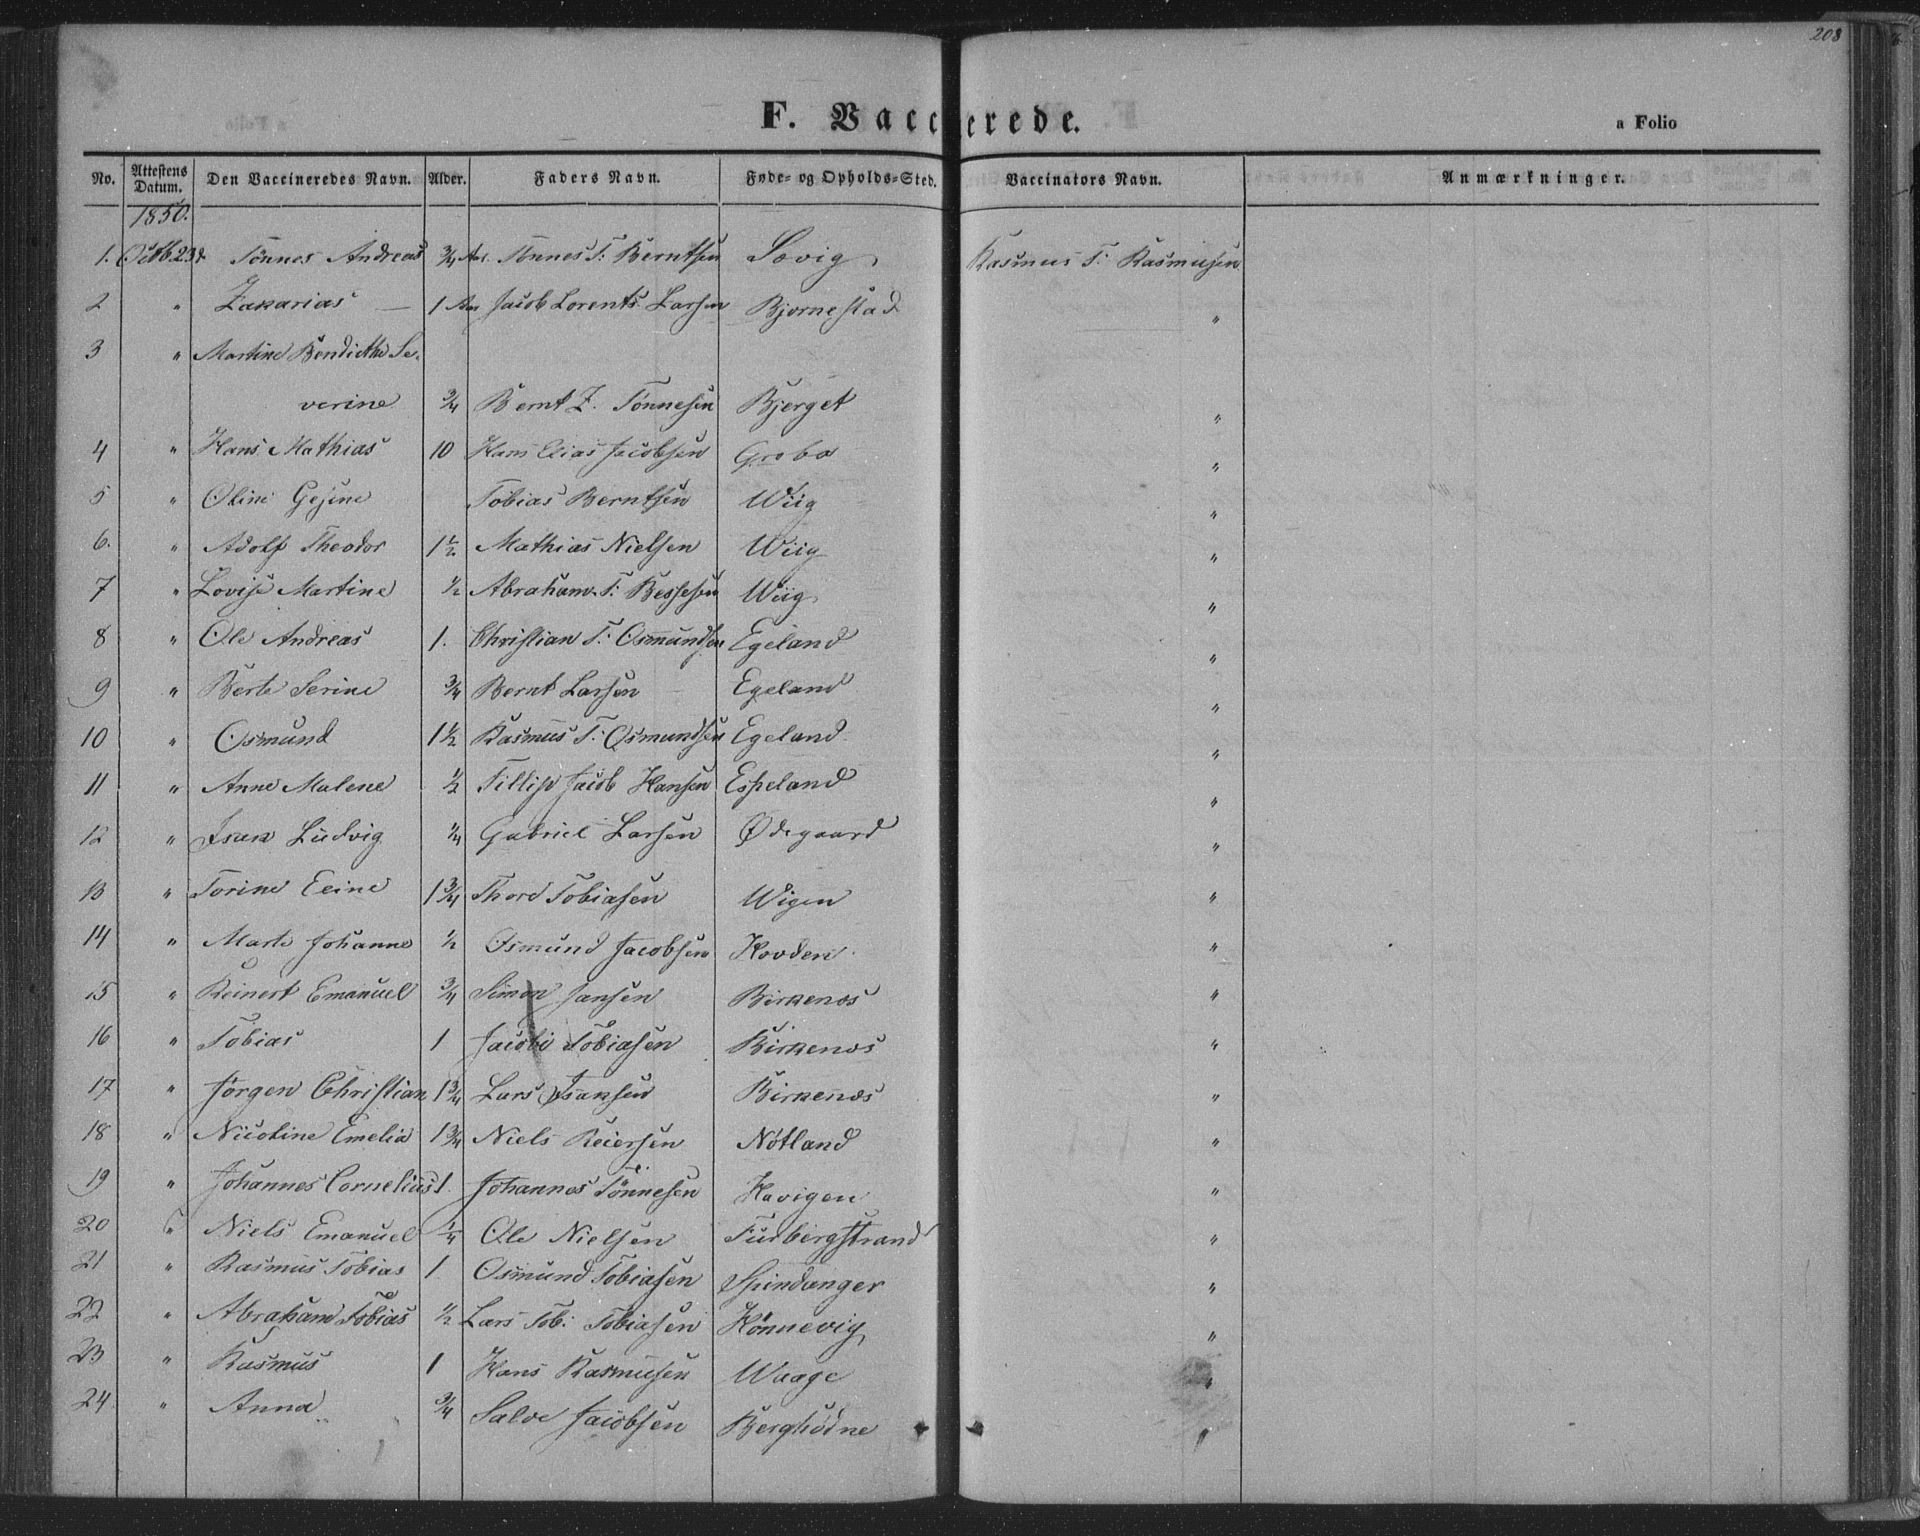 208
F. Vaccinerede.
a Folio
No. Attestens Datum. Den Vaccineredes Navn. Alder. Faders Navn. Føde- og Opholds-Sted. Vaccinators Navn. Anmærkninger.
1850.
1. Octb 23d. Tönnes Andreas 3/4 Aar Tönnes T: Berntsen Lovig Rasmus T: Rasmusen
2 " Zakarias — 1 Aar Jacob Lorents Larsen Bjørnestad "
3 " Martine Bendicthe Se-
verine 3/4 Bernt Z. Tönnesen Bjerget "
4 " Hans Mathias 10 Hans Elias Jacobsen Grobo "
5 " Oline Gesine Tobias Berntsen Wiig "
6. " Adolf Theodor 1 1/2 Mathias Nielsen Wiig "
7 " Lovise Martine 1/2 Abraham T: Bessesen Wiig "
8 " Ole Andreas 1. Christian T: Osmundsen Egeland "
9 " Berte Serine 3/4 Bernt Larsen Egeland "
10 " Osmund 1 1/2 Rasmus T: Osmundsen Egeland "
11 " Anne Malene 1/2 Fillip Jacob Hansen Espeland "
12 " Isak Ludvig 1/4 Gabriel Larsen Ødegaard "
13 " Torine Eline 1 3/4 Thore Tobiasen Wigen "
14 " Marte Johanne 1/2 Osmund Jacobsen Hovden "
15 " Reinert Emanuel 3/4 Simon Jansen Birkenes "
16 " Tobias 1 Jacob Tobiasen Birkenes "
17 " Jørgen Christian 1 3/4 Lars Isaksen Birkenæs "
18 " Nicoline Emelia 1 3/4 Niels Reiersen Nøtland "
19 " Johannes Cornelius 1. Johannes Tönnesen Havigen "
20 " Niels Emanuel 1/4 Ole Nielsen Furbergstrand "
21 " Rasmus Tobias 1 Osmund Tobiasen Spindanger "
22 " Abraham Tobias 1/2 Lars Tob: Tobiasen Rönnevig "
23 " Rasmus 1 Hans Rasmusen Waage "
24 " Anna 3/4 Salve Jacobsen "